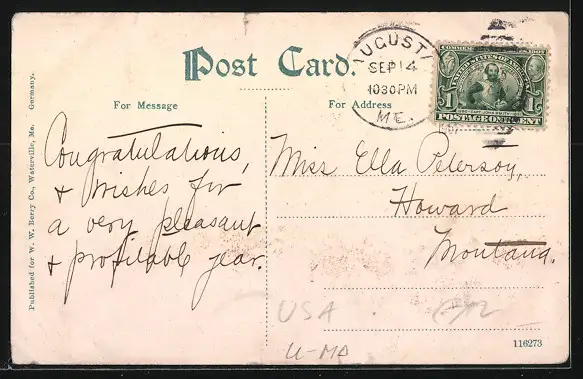 Post Card.
For Message
For Address
AUGUSTA
SEP 14
1030PM
ME.
COMMEM 1907
UNITED STATES OF AMERICA
1580 CAPT. JOHN SMITH 1631
1 1
POSTAGE ONE CENT
Congratulations,
& wishes for
a very pleasant
& profitable year.
Miss Ella Peterson,
Howard
Montana.
USA
U-MA
Published for W. W. Berry Co., Waterville, Me. Germany.
116273